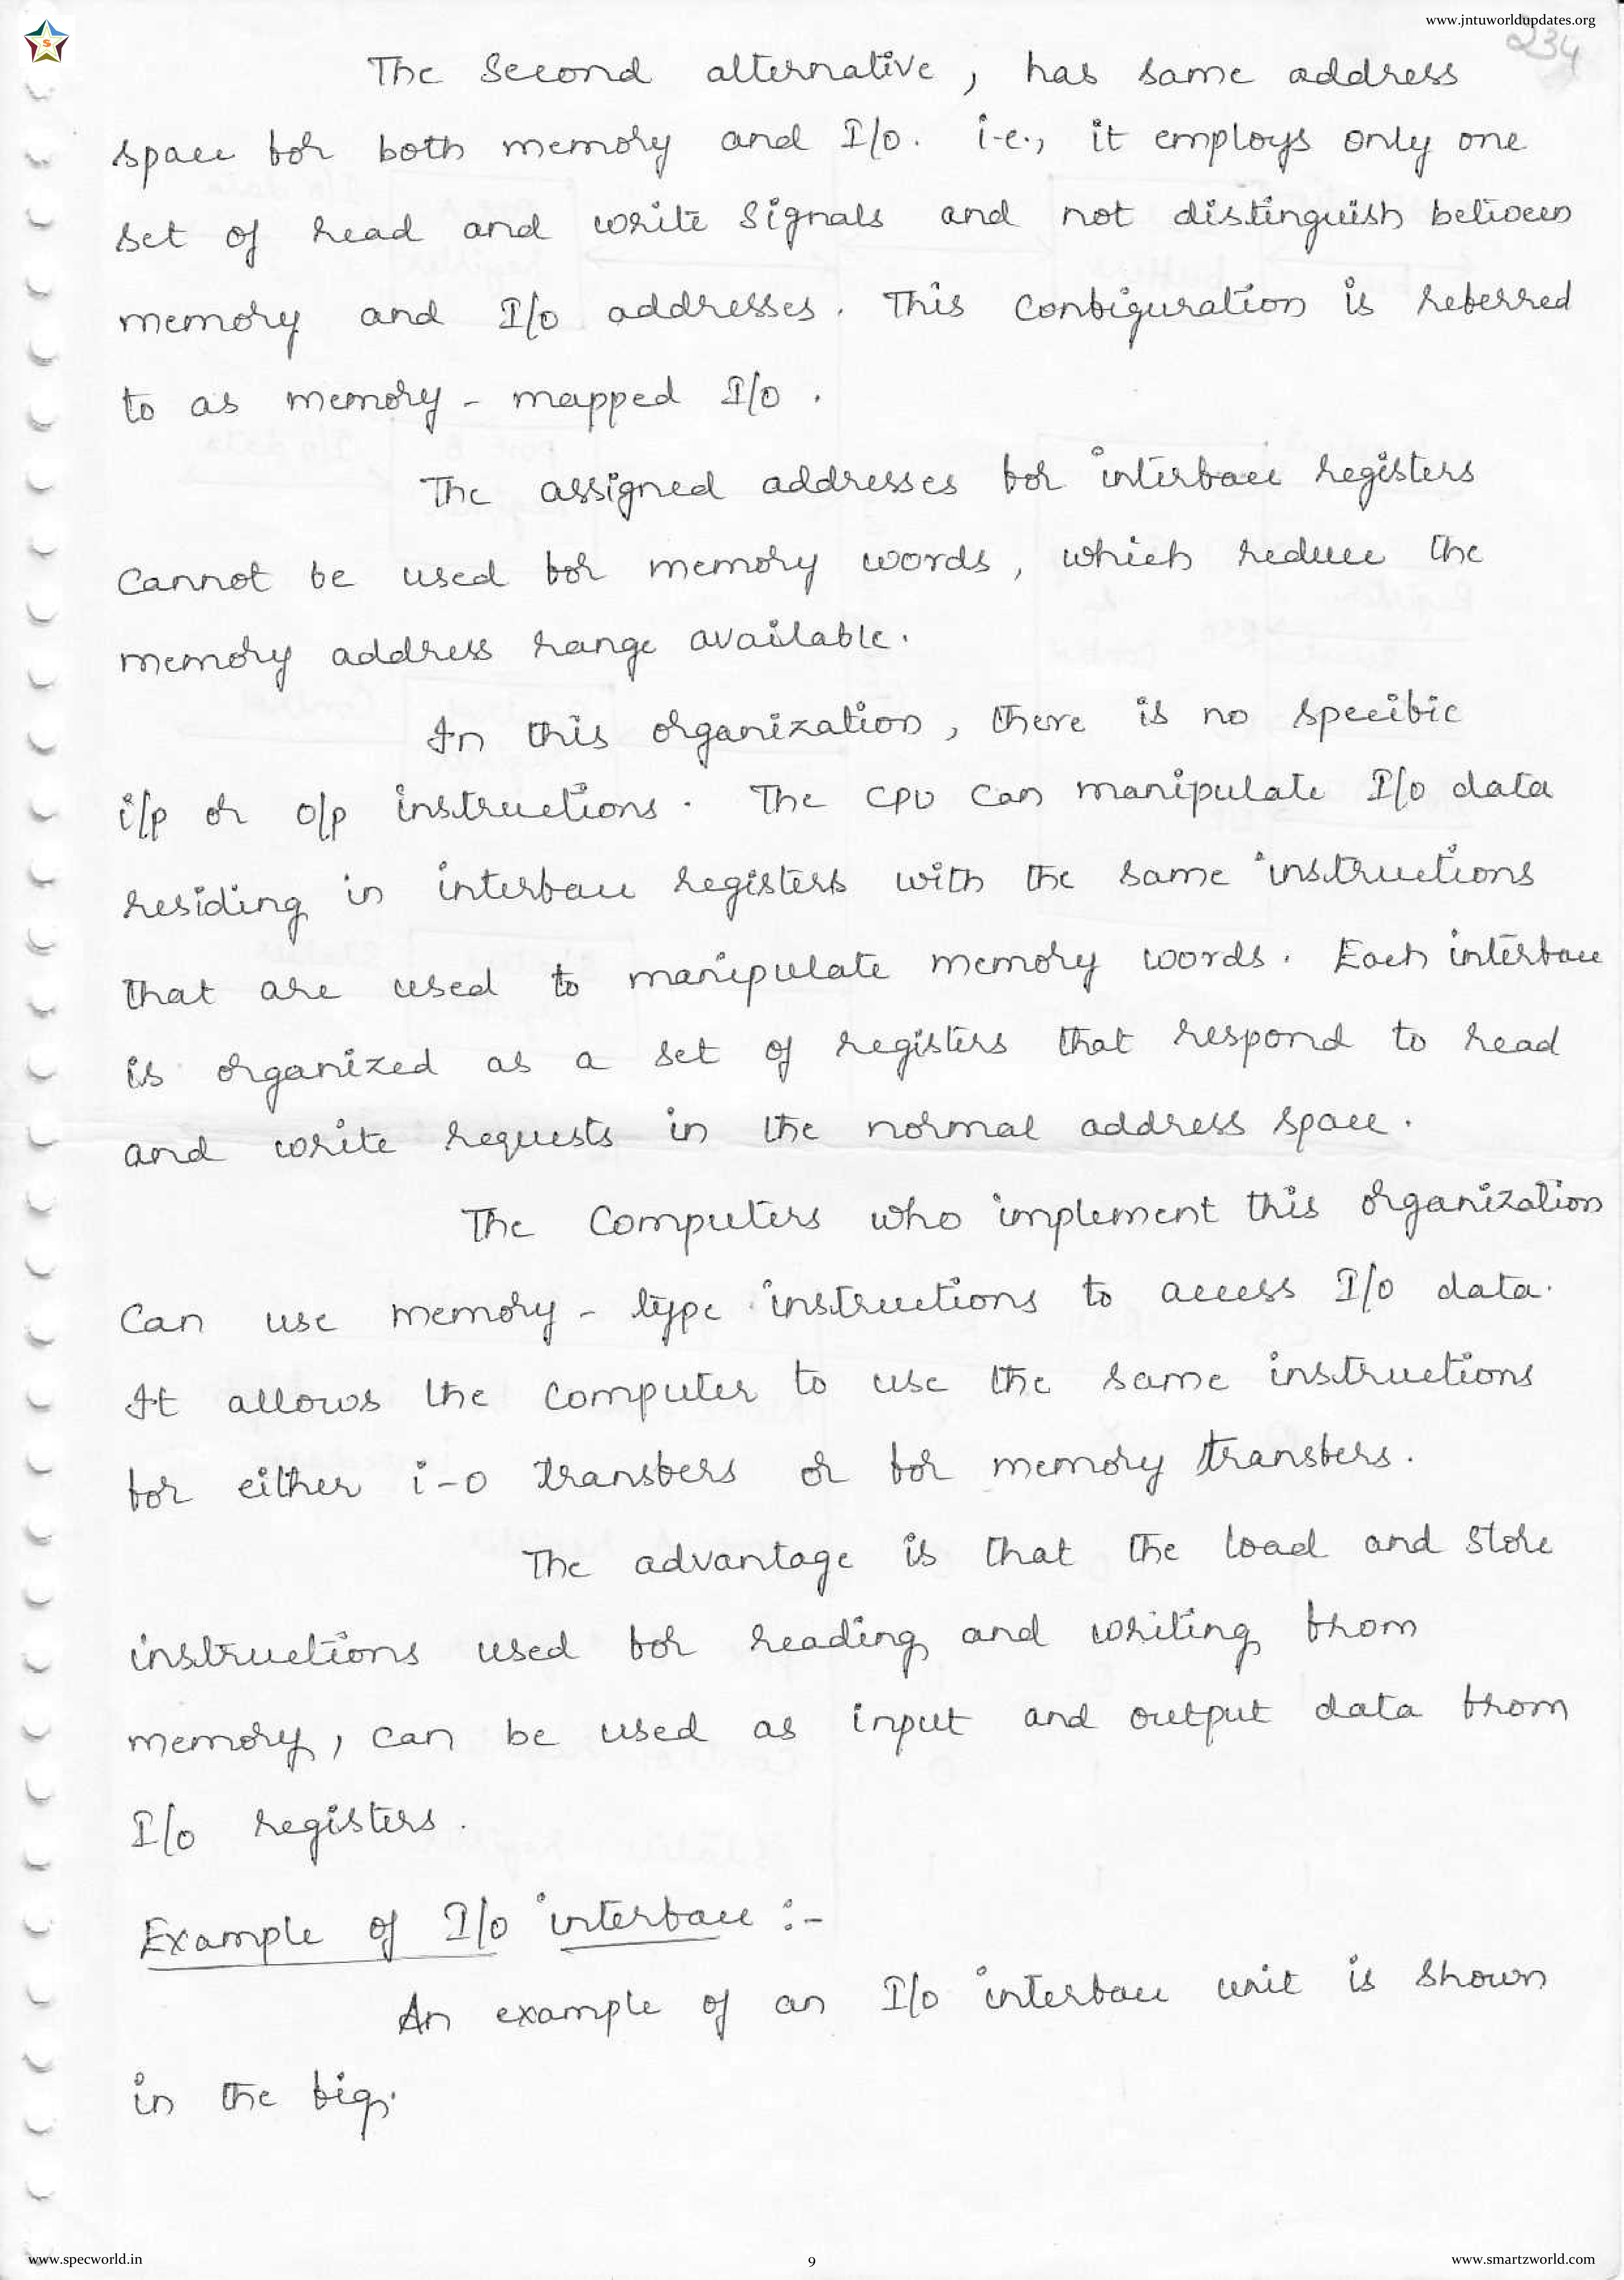 www.jntuworldupdates.org
234
The Second alternative, has same address
space for both memory and I/O. i.e., it employs only one
set of read and write Signals and not distinguish between
memory and I/O addresses. This Configuration is referred
to as memory-mapped I/O.
The assigned addresses for interface registers
cannot be used for memory words, which reduce the
memory address range available.
In this organization, there is no specific
i/p or o/p instructions. The CPU can manipulate I/O data
residing in interface registers with the same instructions
that are used to manipulate memory words. Each interface
is organized as a set of registers that respond to read
and write requests in the normal address space.
The Computers who implement this organization
Can use memory-type instructions to access I/O data.
It allows the Computer to use the same instructions
for either i-o transfers or for memory transfers.
The advantage is that the load and Store
instructions used for reading and writing from
memory, can be used as input and output data from
I/O registers.
Example of I/O interface :-
An example of an I/O interface unit is shown
in the fig.
www.specworld.in
9
www.smartzworld.com